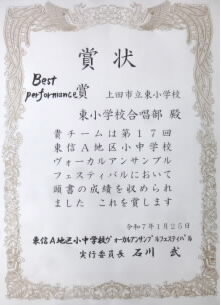 賞状
Best
performance賞
上田市立東小学校
東小学校合唱部 殿
貴チームは第17回
東信A地区小中学校
ヴォーカルアンサンブル
フェスティバルにおいて
頭書の成績を収められ
ました これを賞します
令和7年1月25日
東信A地区小中学校ヴォーカルアンサンブルフェスティバル
実行委員長 石川 武